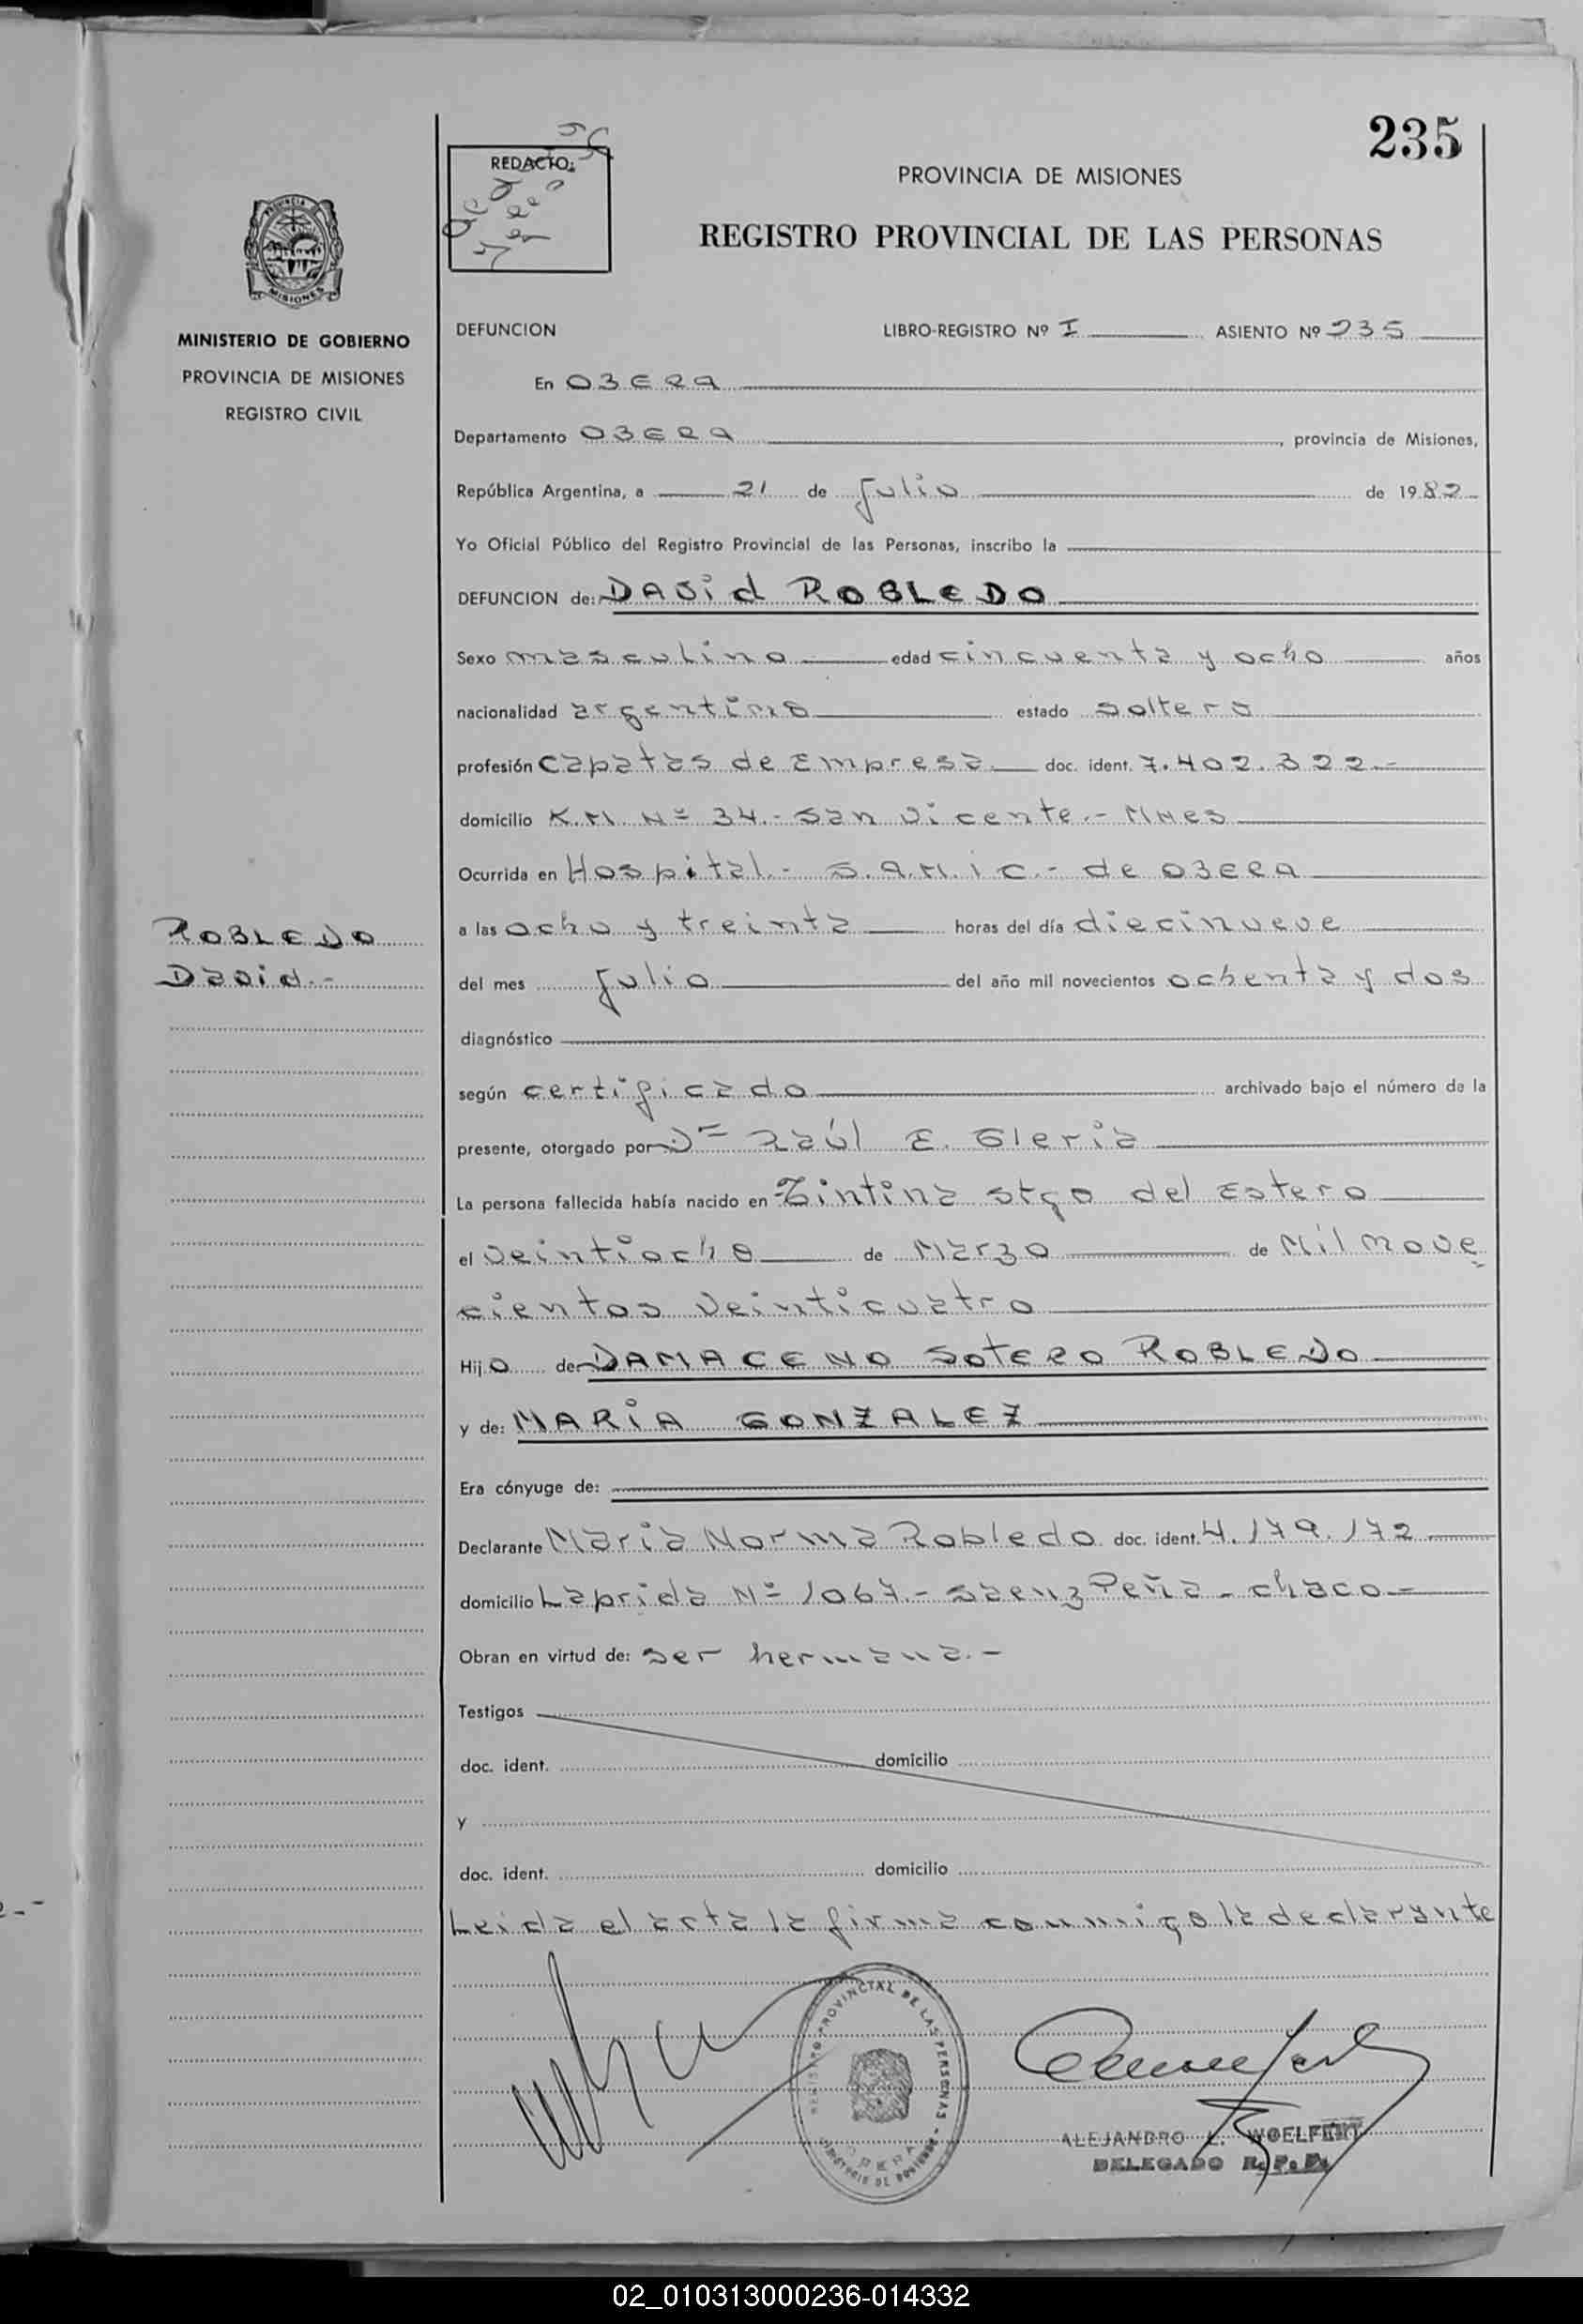 235
REDACTO:
PROVINCIA DE MISIONES
REGISTRO PROVINCIAL DE LAS PERSONAS
PROVINCIA DE
MISIONES
MINISTERIO DE GOBIERNO
PROVINCIA DE MISIONES
REGISTRO CIVIL
DEFUNCION LIBRO-REGISTRO Nº I ASIENTO Nº 235
En OBERA
Departamento OBERA, provincia de Misiones,
República Argentina, a 21 de Julio de 1982
Yo Oficial Público del Registro Provincial de las Personas, inscribo la
DEFUNCION de: DAVid ROBLEDO
Sexo masculino edad cincuenta y ocho años
nacionalidad argentino estado soltero
profesión capatas de Empresa doc. ident. 7.402.322.-
domicilio K.M. Nº 34.- San Vicente.- Mnes
Ocurrida en Hospital.- S.A.M.i C.- de OBERA
a las ocho y treinta horas del día diecinueve
del mes Julio del año mil novecientos ochenta y dos
ROBLEDO
David.-
diagnóstico
según certificado archivado bajo el número de la
presente, otorgado por Dr Raúl E. Gleria
La persona fallecida había nacido en Tintina stgo del Estero
el Veintiocho de Marzo de Mil nove
cientos Veinticuatro
Hijo de: DAMACENO SOTERO ROBLEDO
y de: MARiA GONZALEZ
Era cónyuge de:
Declarante Maria Norma Robledo doc. ident. 4.179.172
domicilio Laprida Nº 1067.- Saenz Peña - chaco -
Obran en virtud de: ser hermana.-
Testigos
doc. ident. domicilio
y
doc. ident. domicilio
Leida el acta la firma conmigo la declarante
REGISTRO PROVINCIAL DE LAS PERSONAS - MINISTERIO DE GOBIERNO
OBERA
ALEJANDRO L. WOELFERT
DELEGADO R.P.P.
02_010313000236-014332